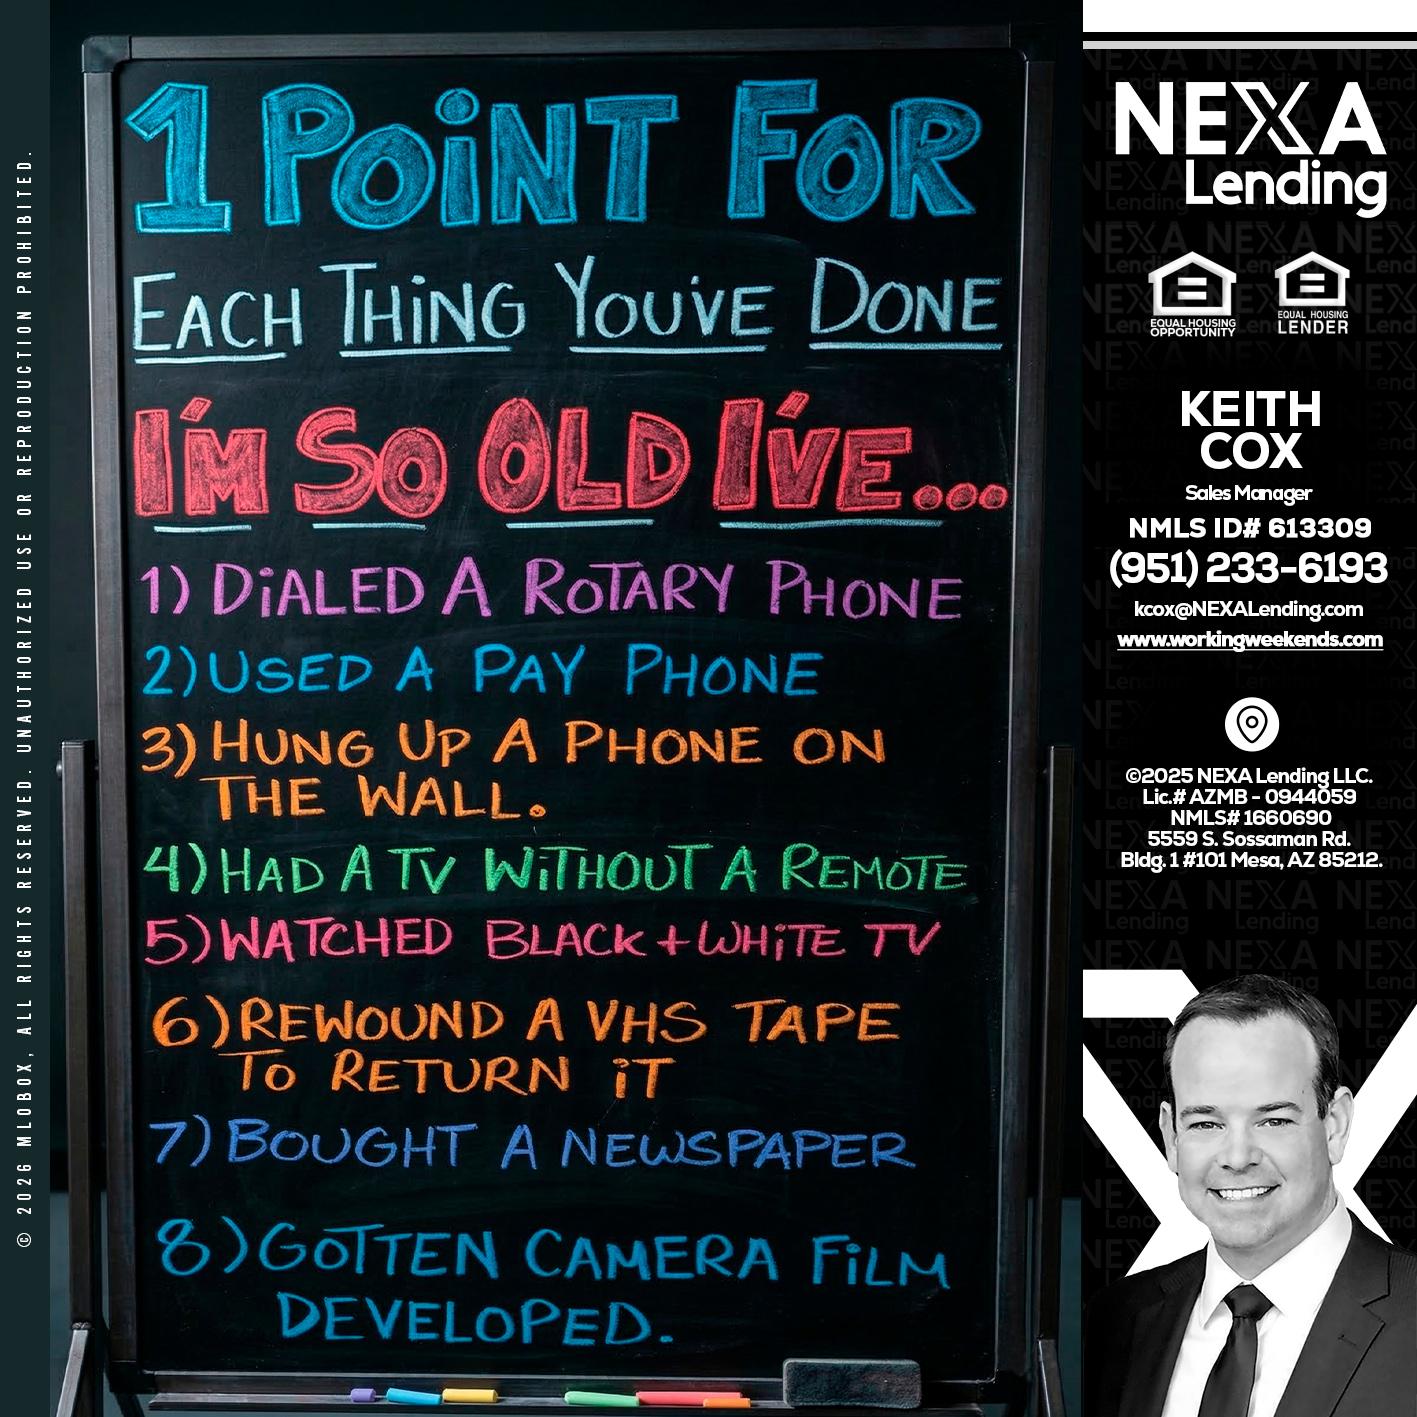 © 2026 MLOBOX, ALL RIGHTS RESERVED. UNAUTHORIZED USE OR REPRODUCTION PROHIBITED.
1 POINT FOR
EACH THING YOU'VE DONE
I'M SO OLD I'VE...
1) DIALED A ROTARY PHONE
2) USED A PAY PHONE
3) HUNG UP A PHONE ON
THE WALL.
4) HAD A TV WITHOUT A REMOTE
5) WATCHED BLACK + WHITE TV
6) REWOUND A VHS TAPE
TO RETURN IT
7) BOUGHT A NEWSPAPER
8) GOTTEN CAMERA FILM
DEVELOPED.
NEXA
Lending
EQUAL HOUSING
OPPORTUNITY
EQUAL HOUSING
LENDER
KEITH
COX
Sales Manager
NMLS ID# 613309
(951) 233-6193
kcox@NEXALending.com
www.workingweekends.com
©2025 NEXA Lending LLC.
Lic.# AZMB - 0944059
NMLS# 1660690
5559 S. Sossaman Rd.
Bldg. 1 #101 Mesa, AZ 85212.